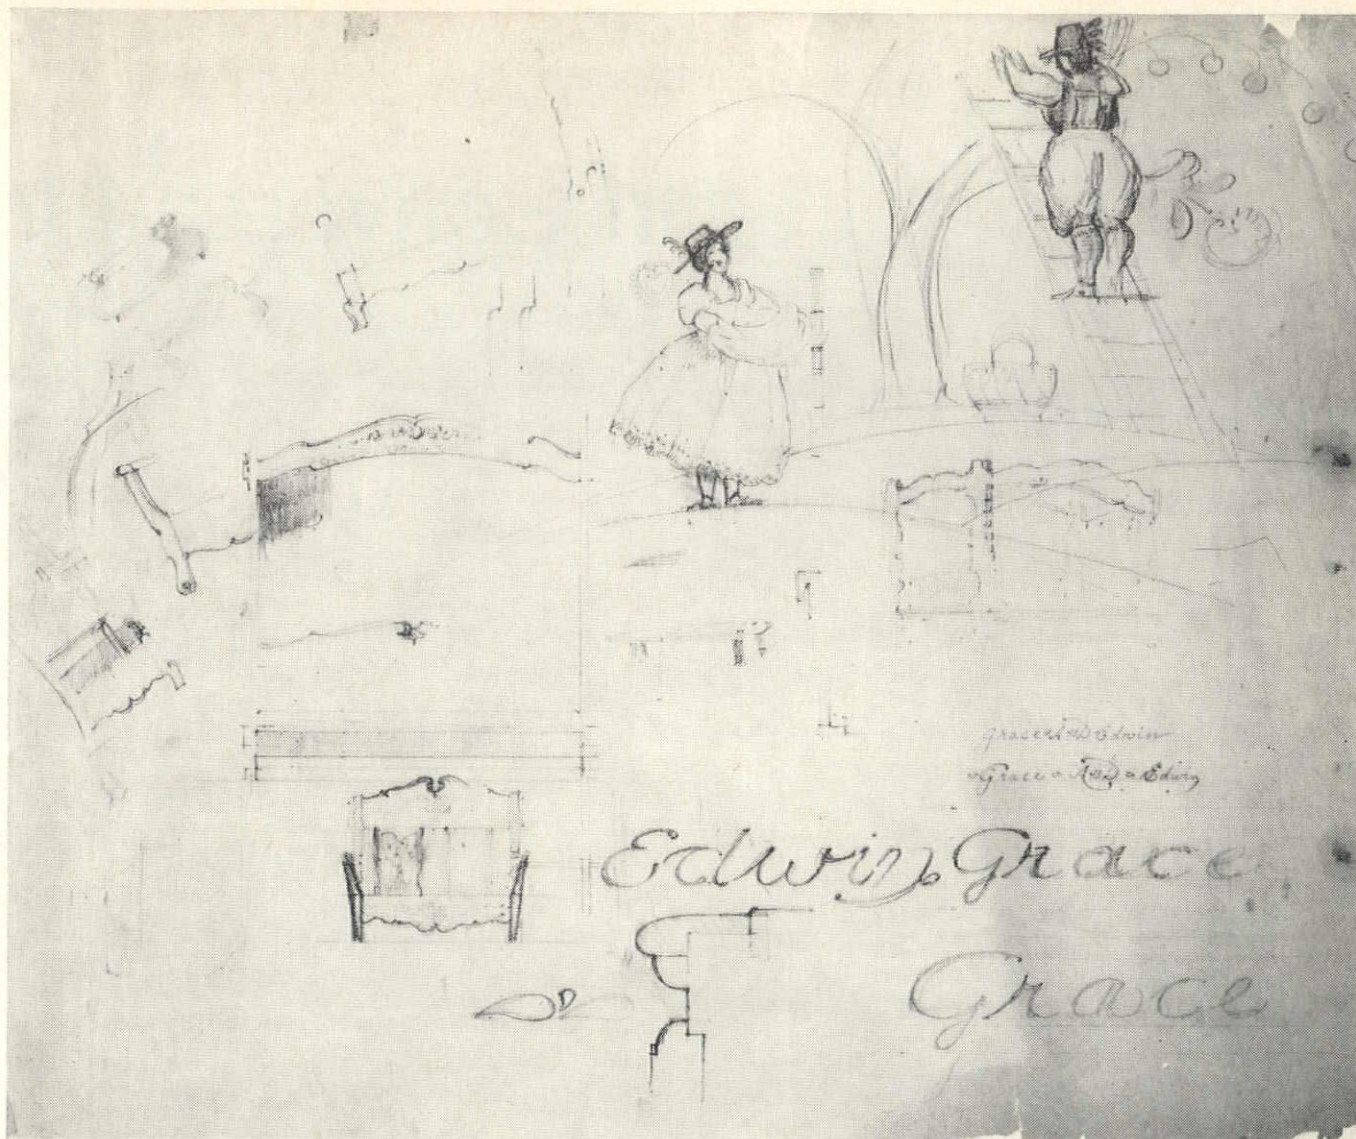 Grace and Edwin
Grace AND Edwin
Edwin. Grace
Grace